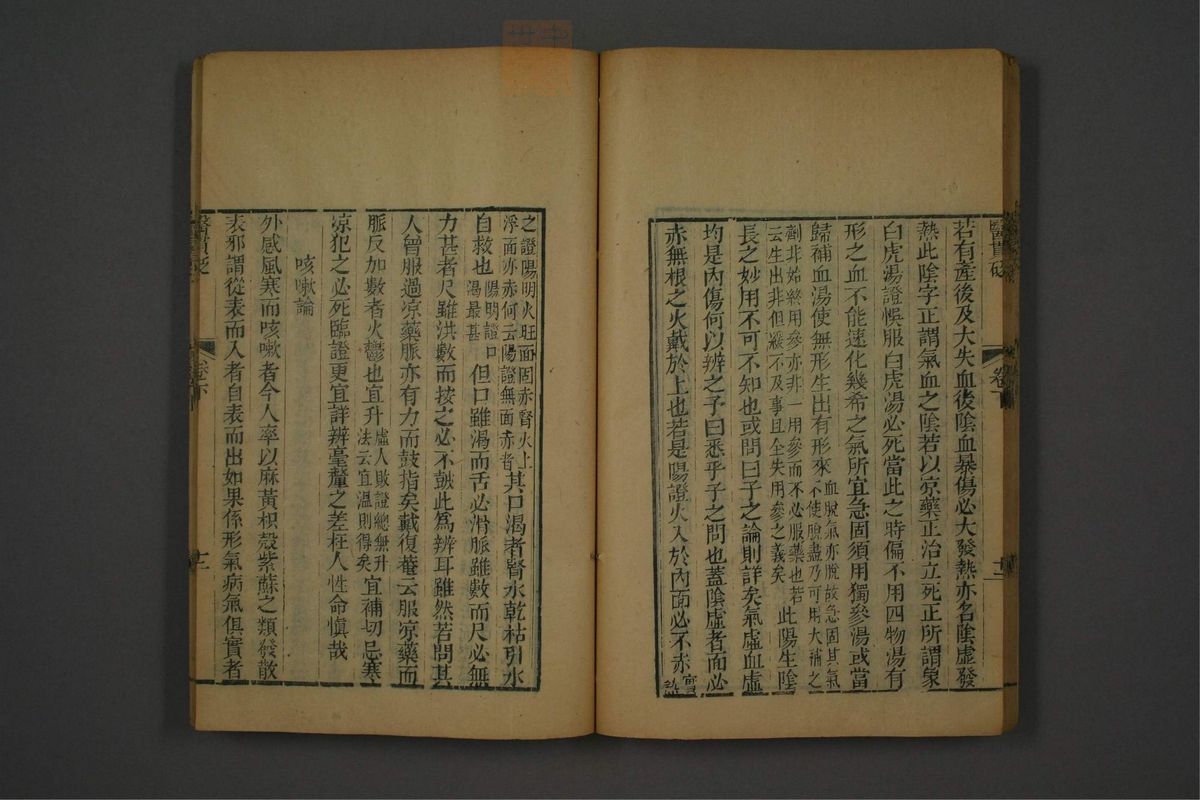 若有產後及大失血後陰血暴傷必大發熱亦名陰虛發
熱此陰字正謂氣血之陰若以凉藥正治立死正所謂象
白虎湯證悞服白虎湯必死當此之時偏不用四物湯有
形之血不能速化幾希之氣所宜急固須用獨參湯或當
歸補血湯使無形生出有形來血脫氣亦脫故急固其氣不使脫盡乃可用大補之
劑非始終用參亦非一用參而不必服藥也若云生出非但緩不及事且全失用參之義矣此陽生陰
長之妙用不可不知也或問曰子之論則詳矣氣虛血虛
均是內傷何以辨之予曰悉乎子之問也蓋陰虛者面必
赤無根之火戴於上也若是陽證火入於內面必不赤
之證陽明火旺面固赤腎火上浮面亦赤何云陽證無面赤者其口渴者腎水乾枯引水
自救也陽明證口渴最甚但口雖渴而舌必滑脈雖數而尺必無
力甚者尺雖洪數而按之必不鼓此為辨耳雖然若問其
人曾服過凉藥脈亦有力而鼓指矣戴復菴云服凉藥而
脈反加數者火鬱也宜升虛人敗證總無升法云宜溫則得矣宜補切忌寒
凉犯之必死臨證更宜詳辨毫釐之差枉人性命愼哉
咳嗽論
外感風寒而咳嗽者今人率以麻黃枳殼紫蘇之類發散
表邪謂從表而入者自表而出如果係形氣病氣俱實者
醫貫砭
卷下